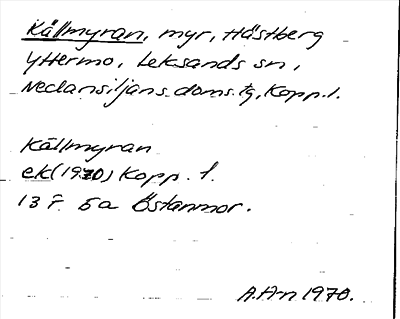 Källmyran, myr, Hästberg
Yttermo, Leksands sn,
Nedansiljans doms.tg, Kopp.l.
Källmyran
ek (1970) Kopp. l.
13 F 5a Östanmor.
A.Arn 1970.